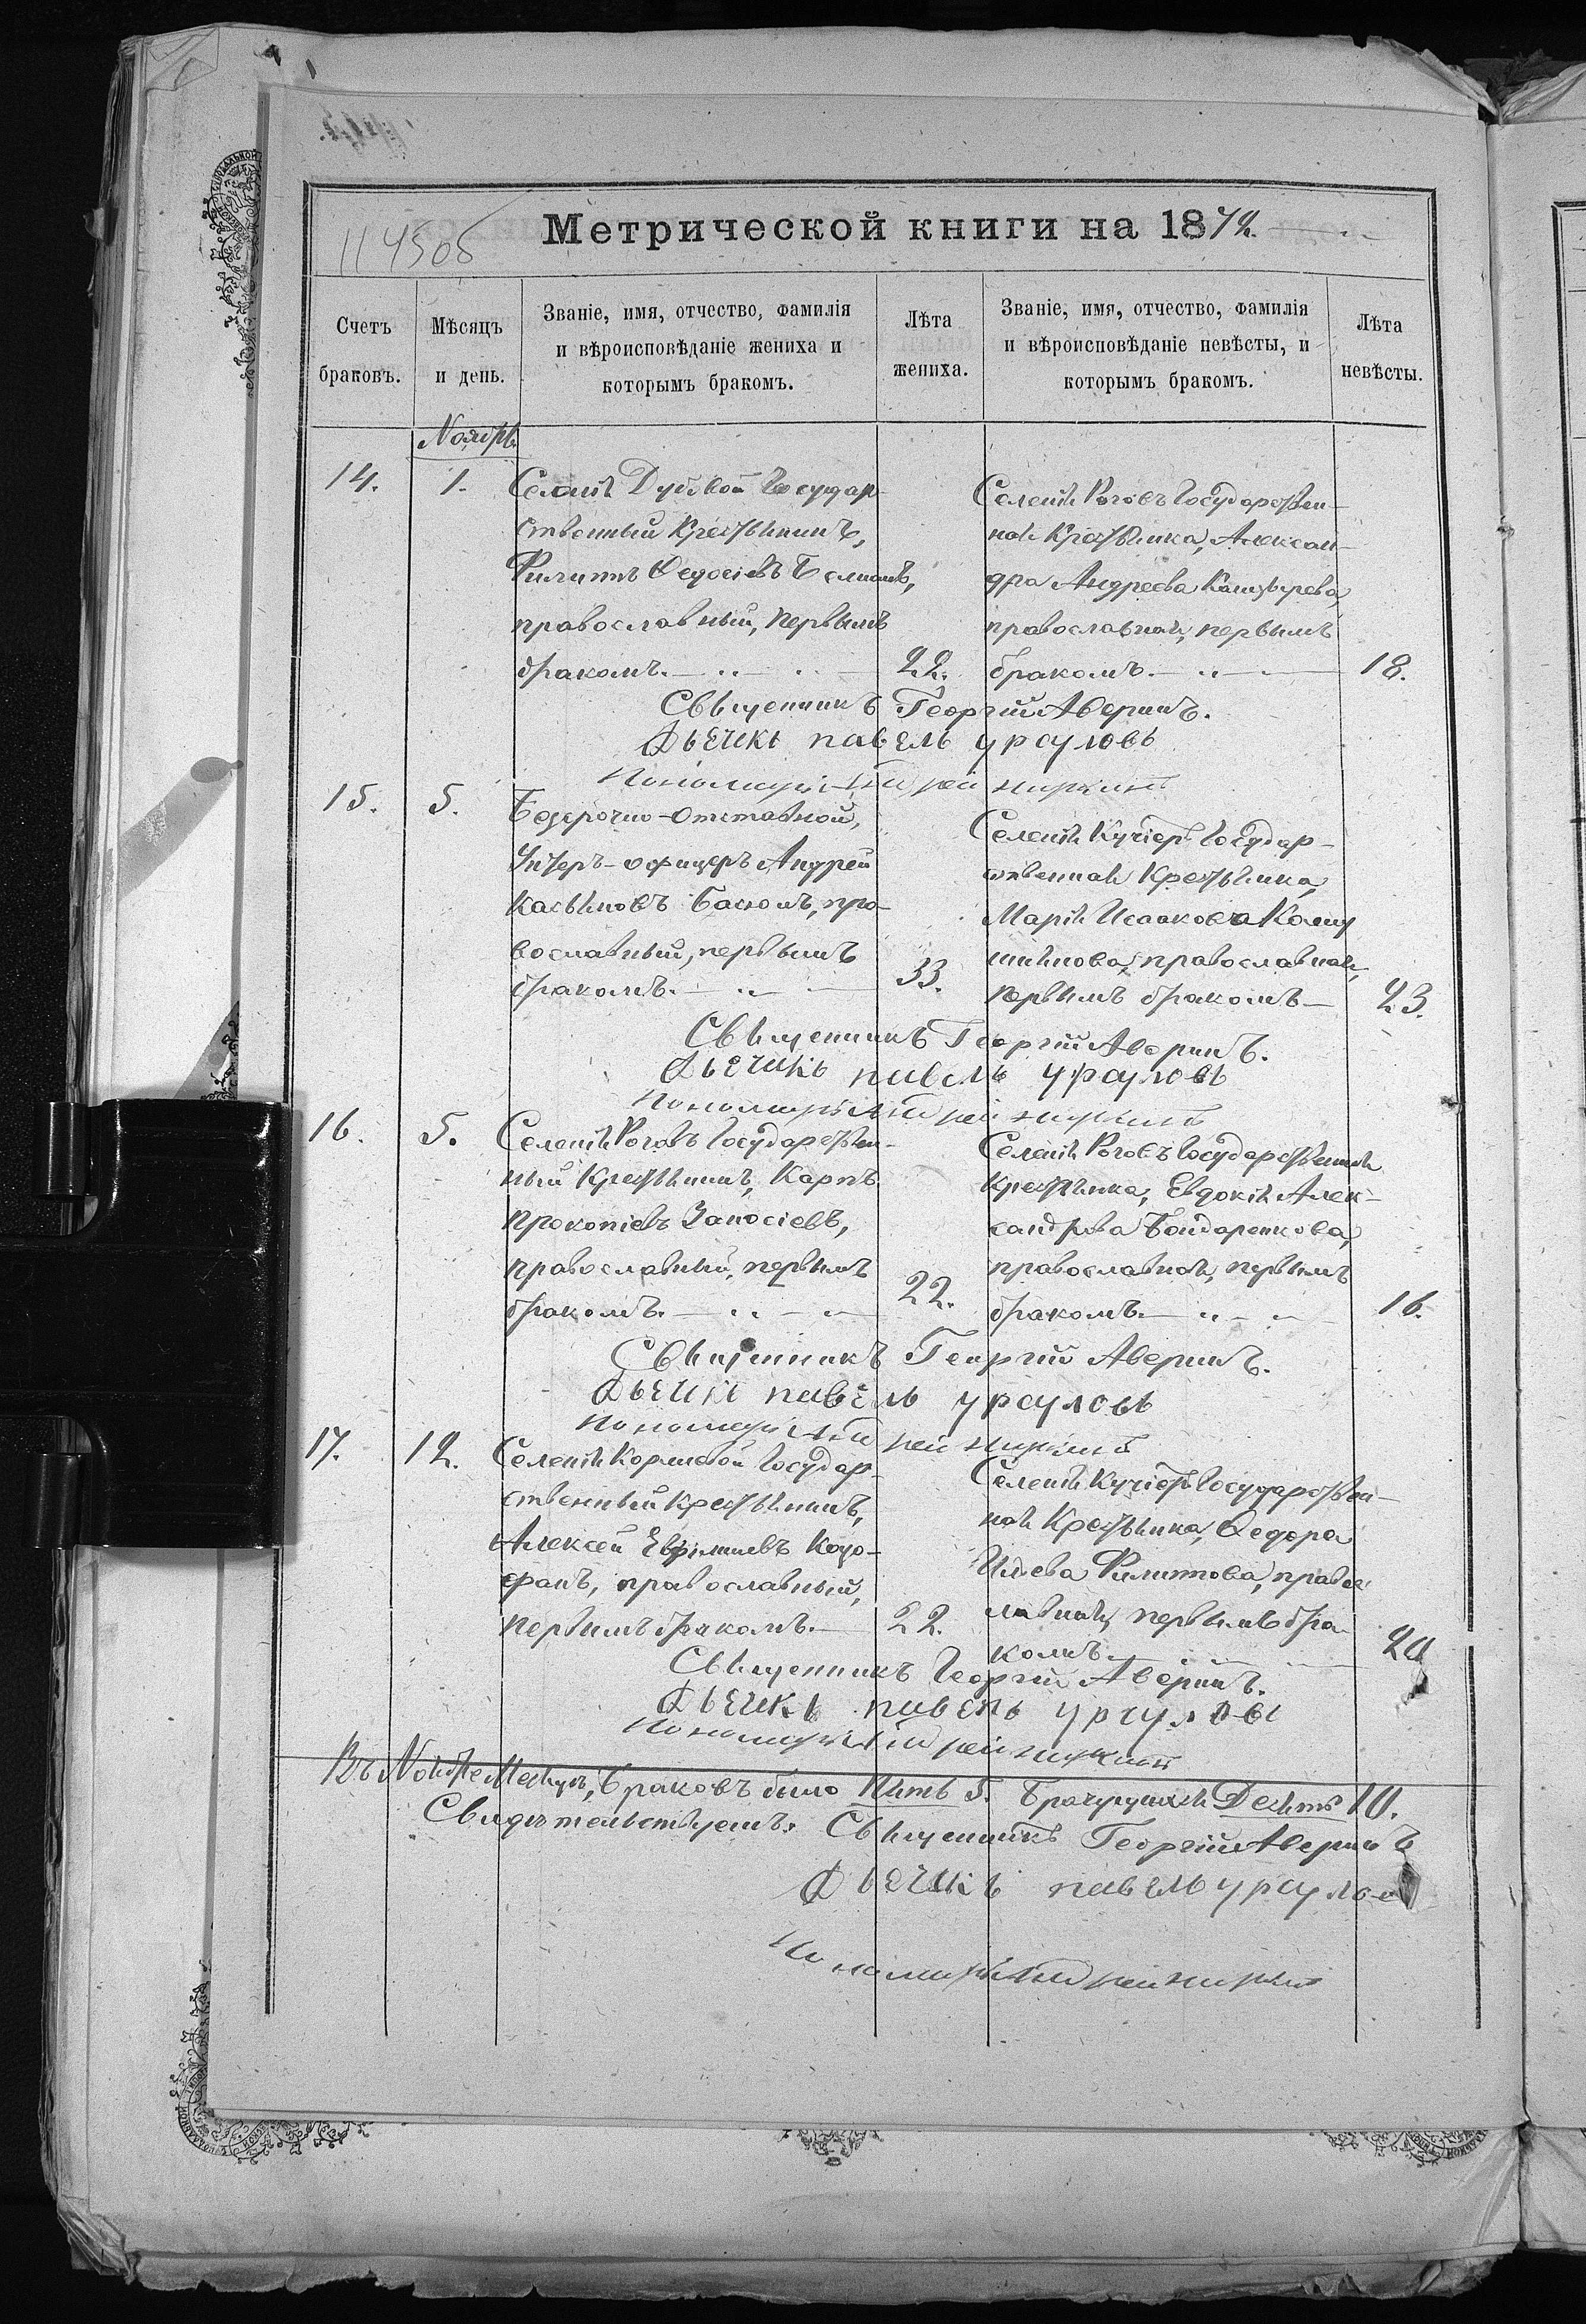 114505
Метрической книги на 1872.
Счетъ браковъ.
Мѣсяцъ и день.
Званіе, имя, отчество, фамилія
и вѣроисповѣданіе жениха и
которымъ бракомъ.
Лѣта жениха.
Званіе, имя, отчество, фамилія
и вѣроисповѣданіе невѣсты, и
которымъ бракомъ.
Лѣта невѣсты.
Ноябрь
14. 1.
Селенія Дубовой Государ-
ственный Крестьянинъ,
Филиппъ Ѳедосіевъ
православный, первымъ
бракомъ. 22.
Селенія Роговъ Государствен-
ная Крестьянка, Алексан-
дра Андреева
православная, первымъ
бракомъ. 18.
Священникъ Георгій Аверинъ.
Дьечикъ павелъ урсуловъ
Пономарь Андрей
15. 5.
Безсрочно-Отставной,
Унтеръ-офицеръ Андрей
Касьяновъ пра-
вославный, первымъ
бракомъ. 33.
Селенія Кучіеръ Государ-
ственная Крестьянка,
Марія Исаакова
православная,
первымъ бракомъ 23.
Священникъ Георгій Аверинъ.
Дьечикъ павелъ урсуловъ
Пономарь Андрей
16. 5.
Селенія Роговъ Государствен-
ный Крестьянинъ, Карпъ
Прокопіевъ Заносіевъ,
православный, первымъ
бракомъ. 22.
Селенія Роговъ Государственная
Крестьянка, Евдокія Алек-
сандрова Бондаренкова,
православная, первымъ
бракомъ 16.
Священникъ Георгій Аверинъ.
Дьечикъ павелъ урсуловъ
Пономарь Андрей
17. 12.
Селенія Коржевой Государ-
ственный Крестьянинъ,
Алексей Евфиміевъ
православный,
первымъ бракомъ. 22.
Селенія Кучіеръ Государствен-
ная Крестьянка, Ѳедора
Ильева Филиппова, правос-
лавная, первымъ бра-
комъ 20
Священникъ Георгій Аверинъ.
Дьечикъ павелъ урсуловъ
Пономарь Андрей
Въ Ноябре Месяцъ, Браковъ было Пять 5. Брачущихся Десять 10.
Свидетельствуемъ: Священникъ Георгій Аверинъ
Дьечикъ павелъ урсуловъ
Пономарь Андрей